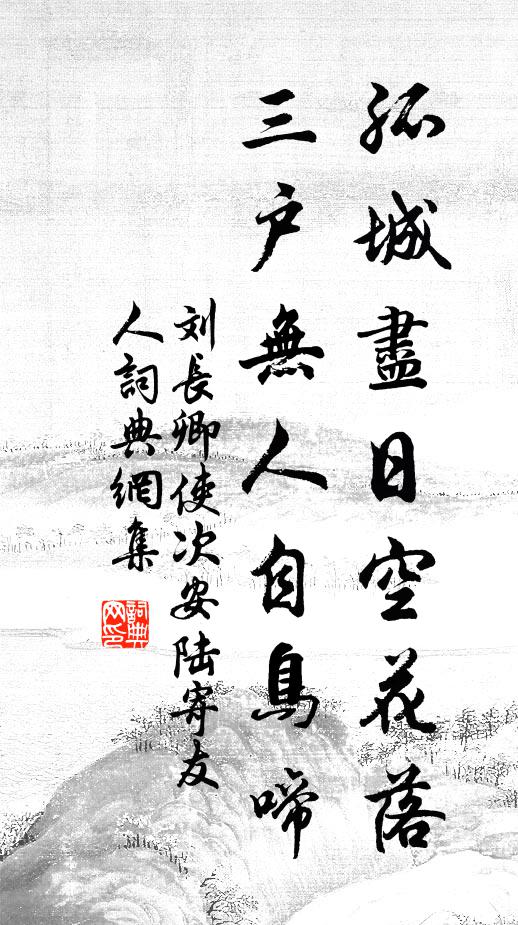 孤城盡日空花落
三户無人自鳥啼
刘長卿使次安陸寄友
人詞典網集
詞典
网印